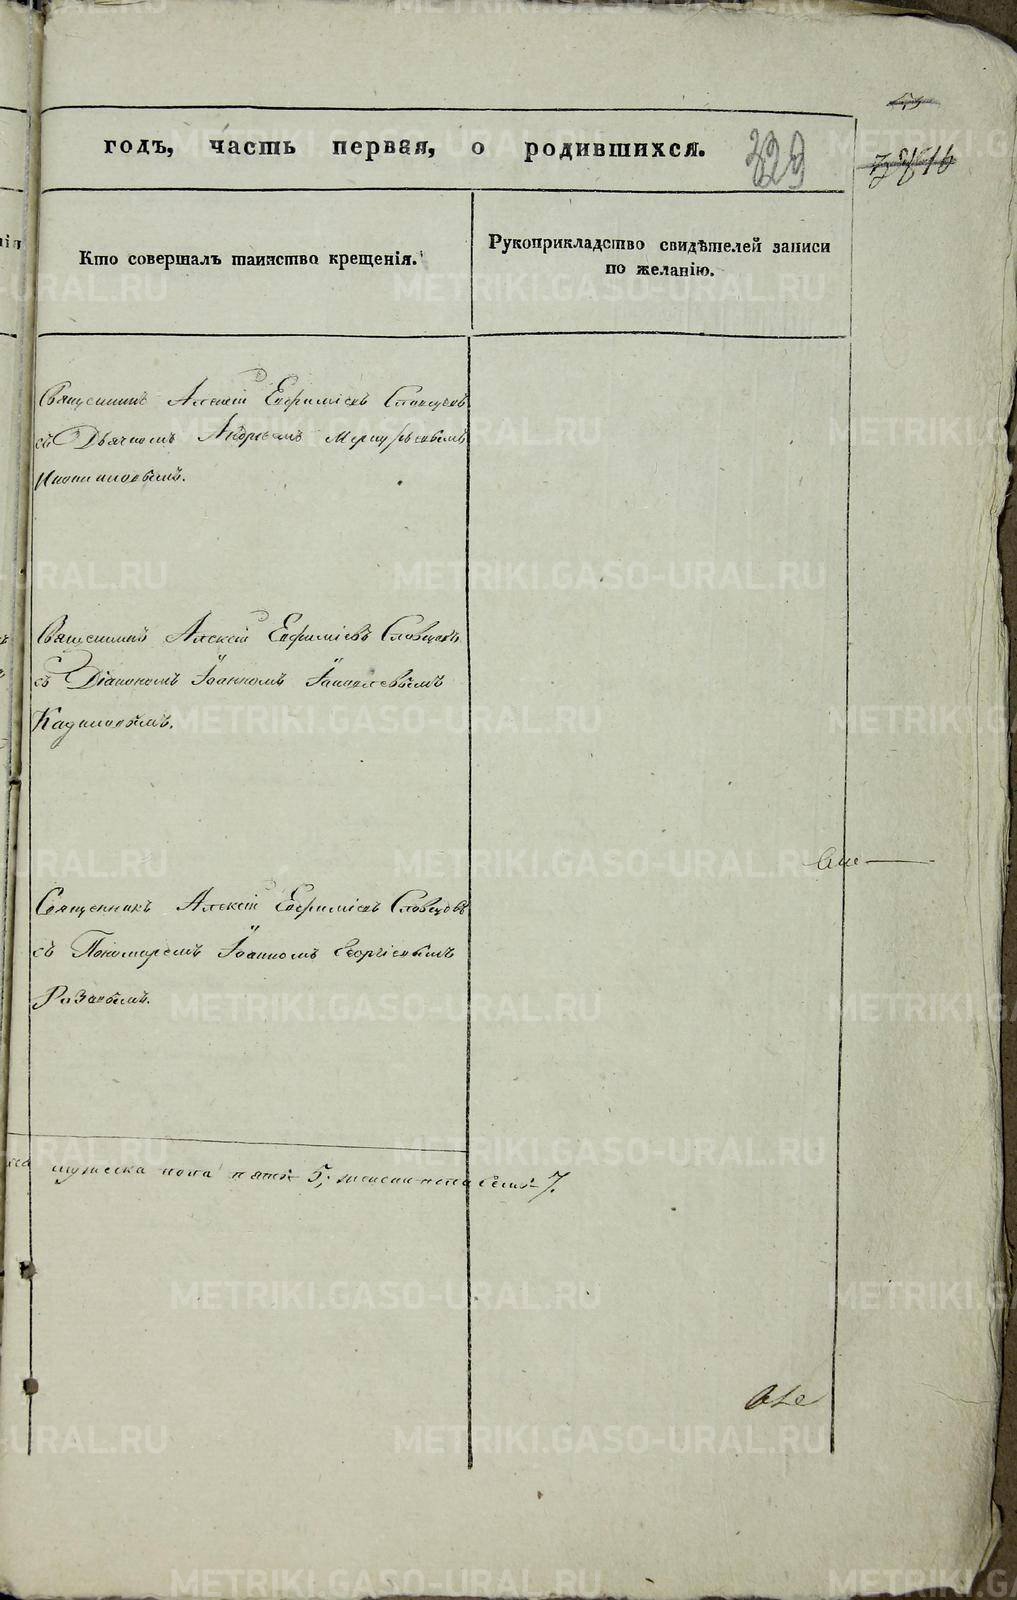 годъ, часть первая, о родившихся.
329
Кто совершалъ таинство крещенія.
Рукоприкладство свидѣтелей записи
по желанію.
Священникъ Алексій Евфиміевъ Словцовъ
съ Дьячкомъ Андреемъ Меркурьевымъ
Священникъ Алексій Евфиміевъ Словцовъ
съ Діакономъ Іоанномъ Іаковлевымъ
Кадиловымъ.
Священникъ Алексій Евфиміевъ Словцовъ
съ Пономаремъ Іоанномъ Георгіевымъ
Розановымъ.
мужеска пола пять 5; женска пола семь 7.
METRIKI.GASO-URAL.RU